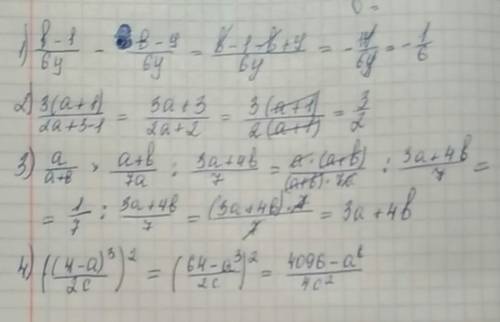 1) \frac{b-1}{6y} - \frac{b-y}{6y} = \frac{b-1-b+y}{6y} = -\frac{y}{6y} = -\frac{1}{6}
2) \frac{3(a+1)}{2a+3-1} = \frac{3a+3}{2a+2} = \frac{3(a+1)}{2(a+1)} = \frac{3}{2}
3) \frac{a}{a+b} \cdot \frac{a+b}{7a} : \frac{3a+4b}{7} = \frac{a \cdot (a+b)}{(a+b) \cdot 7a} : \frac{3a+4b}{7} =
= \frac{1}{7} : \frac{3a+4b}{7} = \frac{(3a+4b) \cdot 7}{7} = 3a+4b
4) (\frac{(4-a)^3}{2c})^2 = (\frac{64-a^3}{2c})^2 = \frac{4096-a^6}{4c^2}